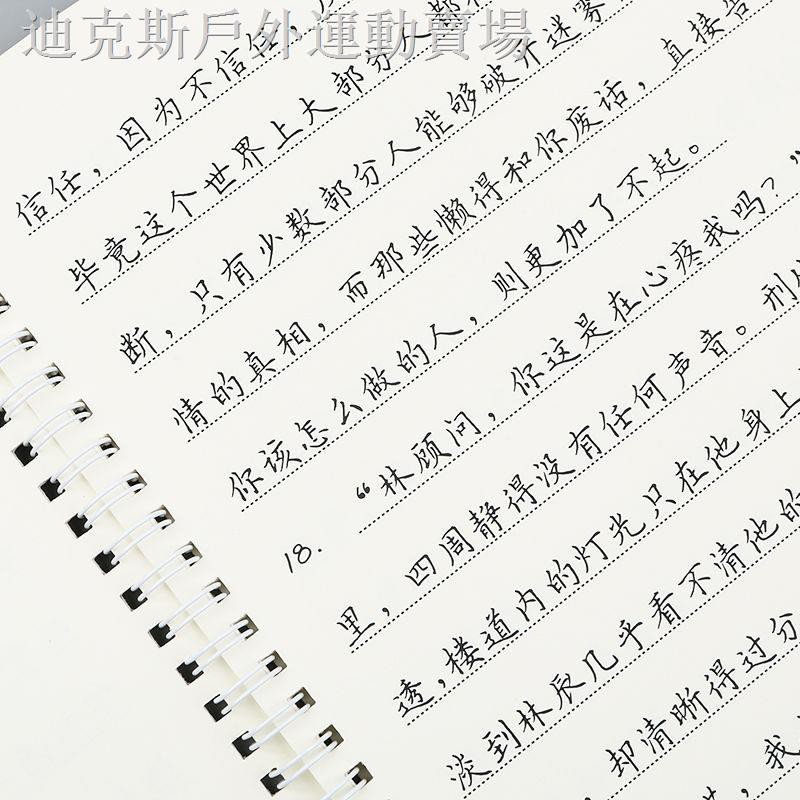 迪克斯戶外運動賣場
信任，因为不信任，
毕竟这个世界上大部分人都
断，只有少数部分人能够破开迷雾
情的真相，而那些懒得和你废话，直接告
你该怎么做的人，则更加了不起。
18. “林顾问，你这是在心疼我吗？”
里，四周静得没有任何声音。刑
透，楼道内的灯光只在他身上
淡到林辰几乎看不清他的
却清晰得过分
我